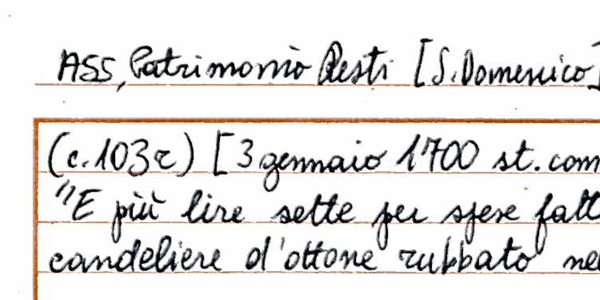 ASS, Patrimonio Resti [S. Domenico]
(c. 103r) [3 gennaio 1700 st. com
"E più lire sette per spese fatt
candeliere d'ottone rubbato ne